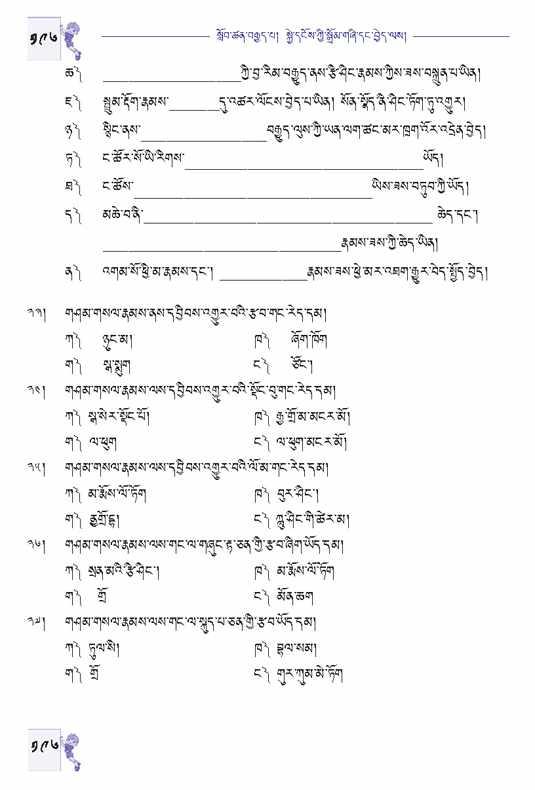 ༡༩༦ སློབ་ཚན་བརྒྱད་པ། སྐྱེ་དངོས་ཀྱི་སྒྲོམ་གཞི་དང་བྱེད་ལས།
ཆ༽ ____________________ ཀྱི་བྱ་རིམ་བརྒྱུད་ནས་རྩི་ཤིང་རྣམས་ཀྱིས་ཟས་བསྐྲུན་པ་ཡིན།
ཇ༽ སྨྱུམ་རྡོག་རྣམས་________དུ་འཚར་ལོངས་བྱེད་པ་ཡིན། སོན་སྣོད་ནི་ཤིང་ཏོག་ཏུ་འགྱུར།
ཉ༽ སྙིང་ནས་____________________བརྒྱུད་ལུས་ཀྱི་ཡན་ལག་ཚང་མར་ཁྲག་འོར་འདྲེན་བྱེད།
ཏ༽ ང་ཚོར་སོ་ཡི་རིགས་____________________ཡོད།
ཐ༽ ང་ཚོས་____________________ཡིས་ཟས་བཏུབ་ཀྱི་ཡོད།
ད༽ མཆེ་བ་ནི་____________________ ཆེད་དང་།
____________________རྣམས་ཟས་ཀྱི་ཆེད་ཡིན།
ན༽ འགམ་སོ་ཕྱི་མ་རྣམས་དང་། ____________རྣམས་ཟས་ཕྱེ་མར་འཐག་རྒྱུར་བེད་སྤྱོད་བྱེད།
༢༣། གཤམ་གསལ་རྣམས་ནས་དབྱིབས་འགྱུར་བའི་རྩ་བ་གང་རེད་དམ།
ཀ༽ ཉུང་མ། ཁ༽ ཞོག་ཁོག
ག༽ སྒ་སྨུག ང༽ ཙོང་།
༢༤། གཤམ་གསལ་རྣམས་ལས་དབྱིབས་འགྱུར་བའི་སྡོང་བུ་གང་རེད་དམ།
ཀ༽ སྒ་སེར་སྡོང་པོ། ཁ༽ རྒྱ་གྲོ་མ་མངར་མོ།
ག༽ ལ་ཕུག ང༽ ལ་ཕུག་མངར་མོ།
༢༥། གཤམ་གསལ་རྣམས་ལས་དབྱིབས་འགྱུར་བའི་ལོ་མ་གང་རེད་དམ།
ཀ༽ མ་རྨོས་ལོ་ཏོག ཁ༽ བུར་ཤིང་།
ག༽ ང༽ ཀླུ་ཤིང་གི་ཚེར་མ།
༢༦། གཤམ་གསལ་རྣམས་ལས་གང་ལ་གཞུང་རྟ་ཅན་གྱི་རྩ་བ་ཞིག་ཡོད་དམ།
ཀ༽ སྲན་མའི་རྩི་ཤིང་། ཁ༽ མ་རྨོས་ལོ་ཏོག
ག༽ གྲོ ང༽ མོན་ཆག
༢༧། གཤམ་གསལ་རྣམས་ལས་གང་ལ་སྐུད་པ་ཅན་གྱི་རྩ་བ་ཡོད་དམ།
ཀ༽ ཏུལ་སི། ཁ༽ སྦལ་སམ།
ག༽ གྲོ ང༽ གུར་ཀུམ་མེ་ཏོག
༡༩༦